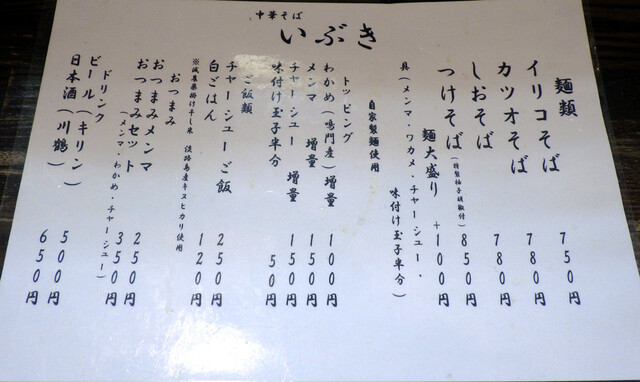 中華そば
いぶき
麺類
イリコそば 750円
カツオそば 780円
しおそば 780円
つけそば(特製柚子胡椒付) 850円
麺大盛り +100円
具(メンマ・ワカメ・チャーシュー・
味付け玉子半分)
自家製麺使用
トッピング
わかめ(鳴門産)増量 100円
メンマ 増量 150円
チャーシュー 増量 150円
味付け玉子半分 50円
ご飯類
チャーシューご飯 250円
白ごはん 120円
※減農薬掛け干し米 淡路島産キヌヒカリ使用
おつまみ
おつまみメンマ 250円
おつまみセット 350円
(メンマ・わかめ・チャーシュー)
ドリンク
ビール(キリン) 500円
日本酒(川鶴) 650円